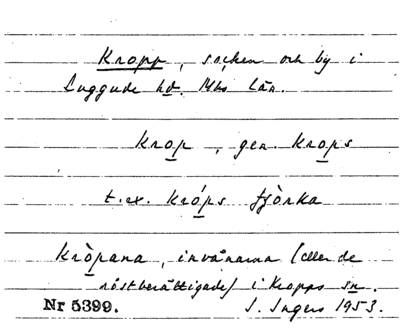 Kropp, socken och by i
Luggude hd. Mhs län.
Krop, gen. Krops
t.ex. Króps fjòrka
Kròpana, invånarna (eller de
röstberättigade) i Kropps sn.
Nr 5399. I. Ingers 1953.